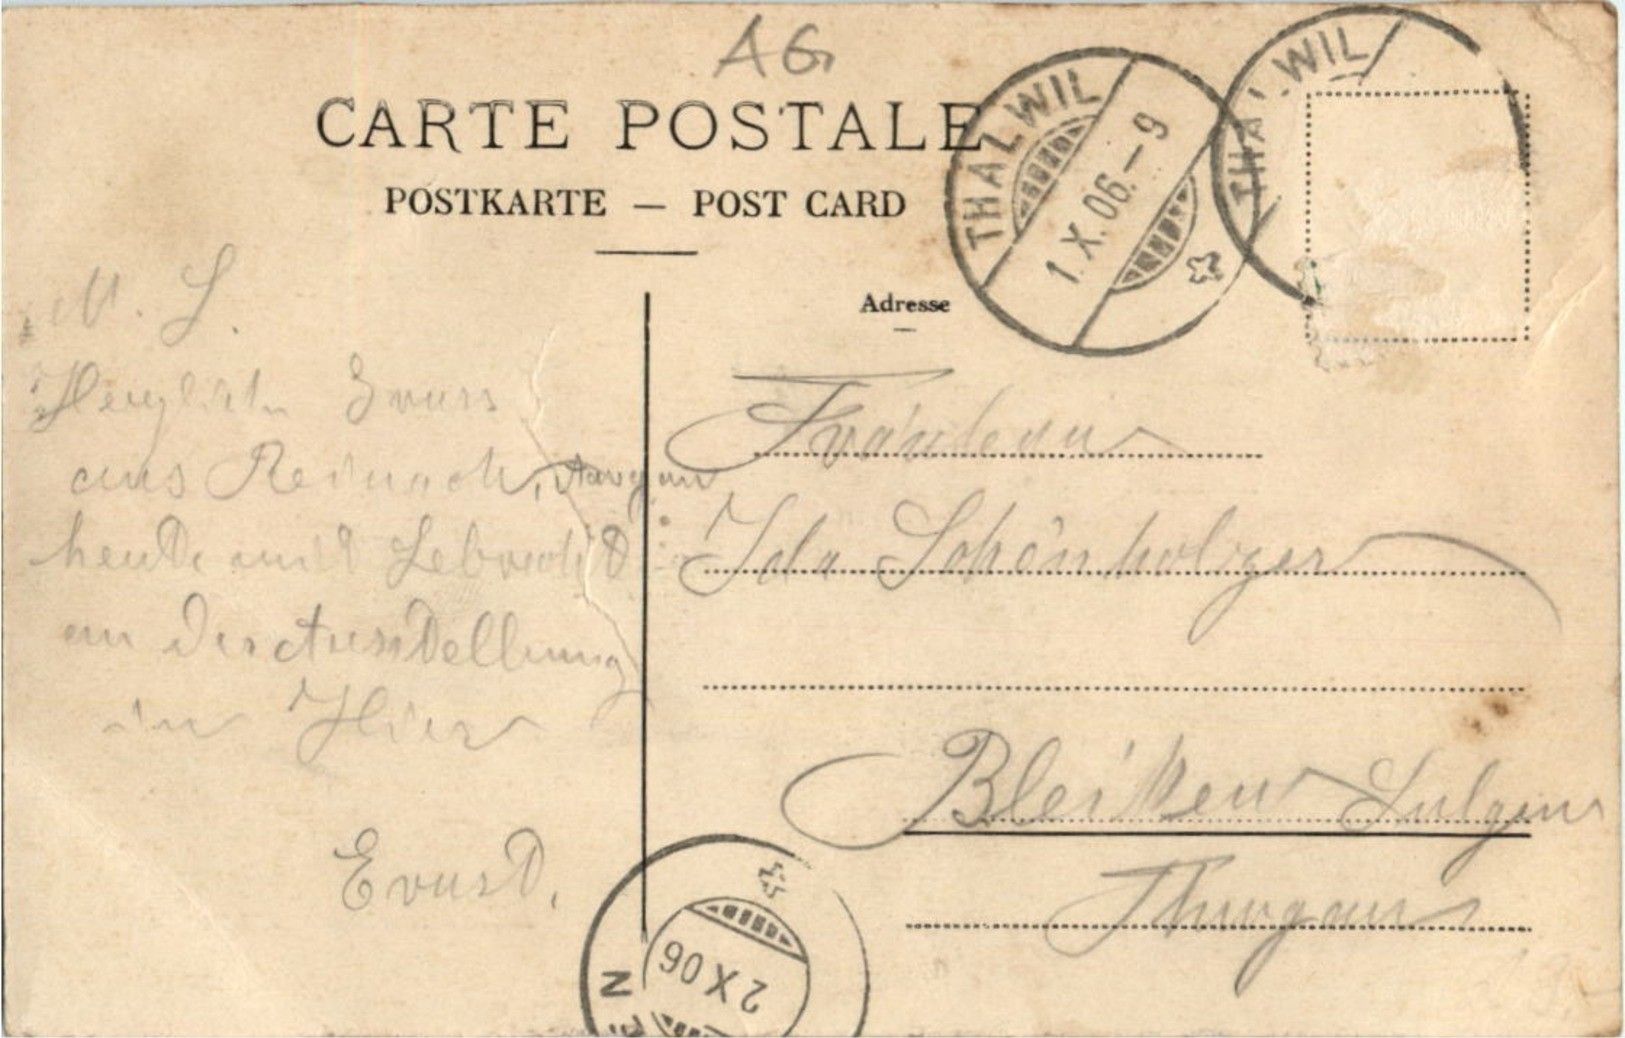 AG
CARTE POSTALE
POSTKARTE — POST CARD
Adresse
THALWIL
1.X.06.—9
THALWIL
M. L.
Herzlichn Gruss
aus Reinach, Aargau
heute mit Lebrecht
an der Ausstellung
in Hier
Ernst.
Fräulein
Ida Schönholzer
Bleiken Sulgen
Thurgau
2 X 06
EN